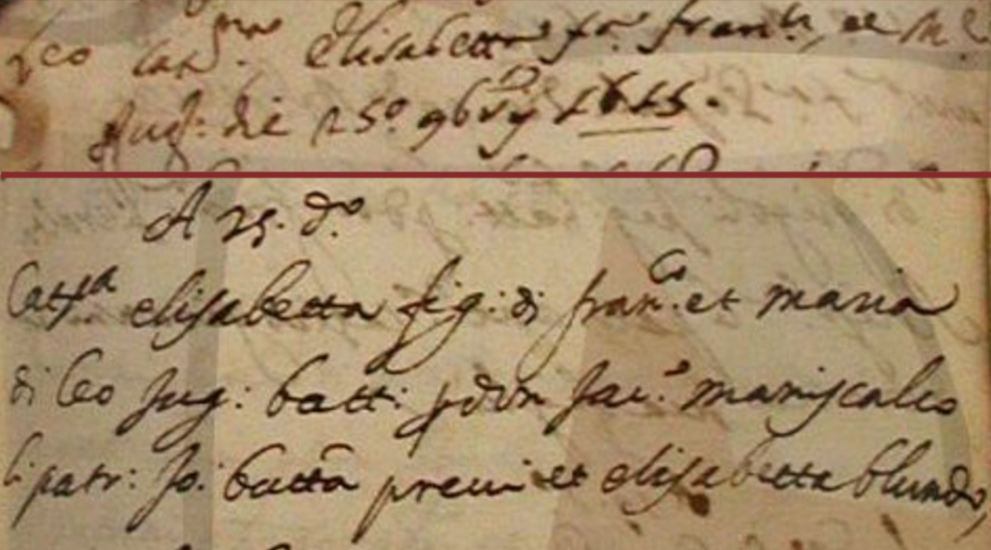 Leo Cat.na Elisabetta fa. fran.ci et m
Jug: die 25° 9bris 1645.
A 25. d.°
Catt.a elisabetta fig: di fran.co et maria
di leo Jug: batt: p don Jac.° maniscalco
li patr: Jo: batta preui et elisabetta blundo,